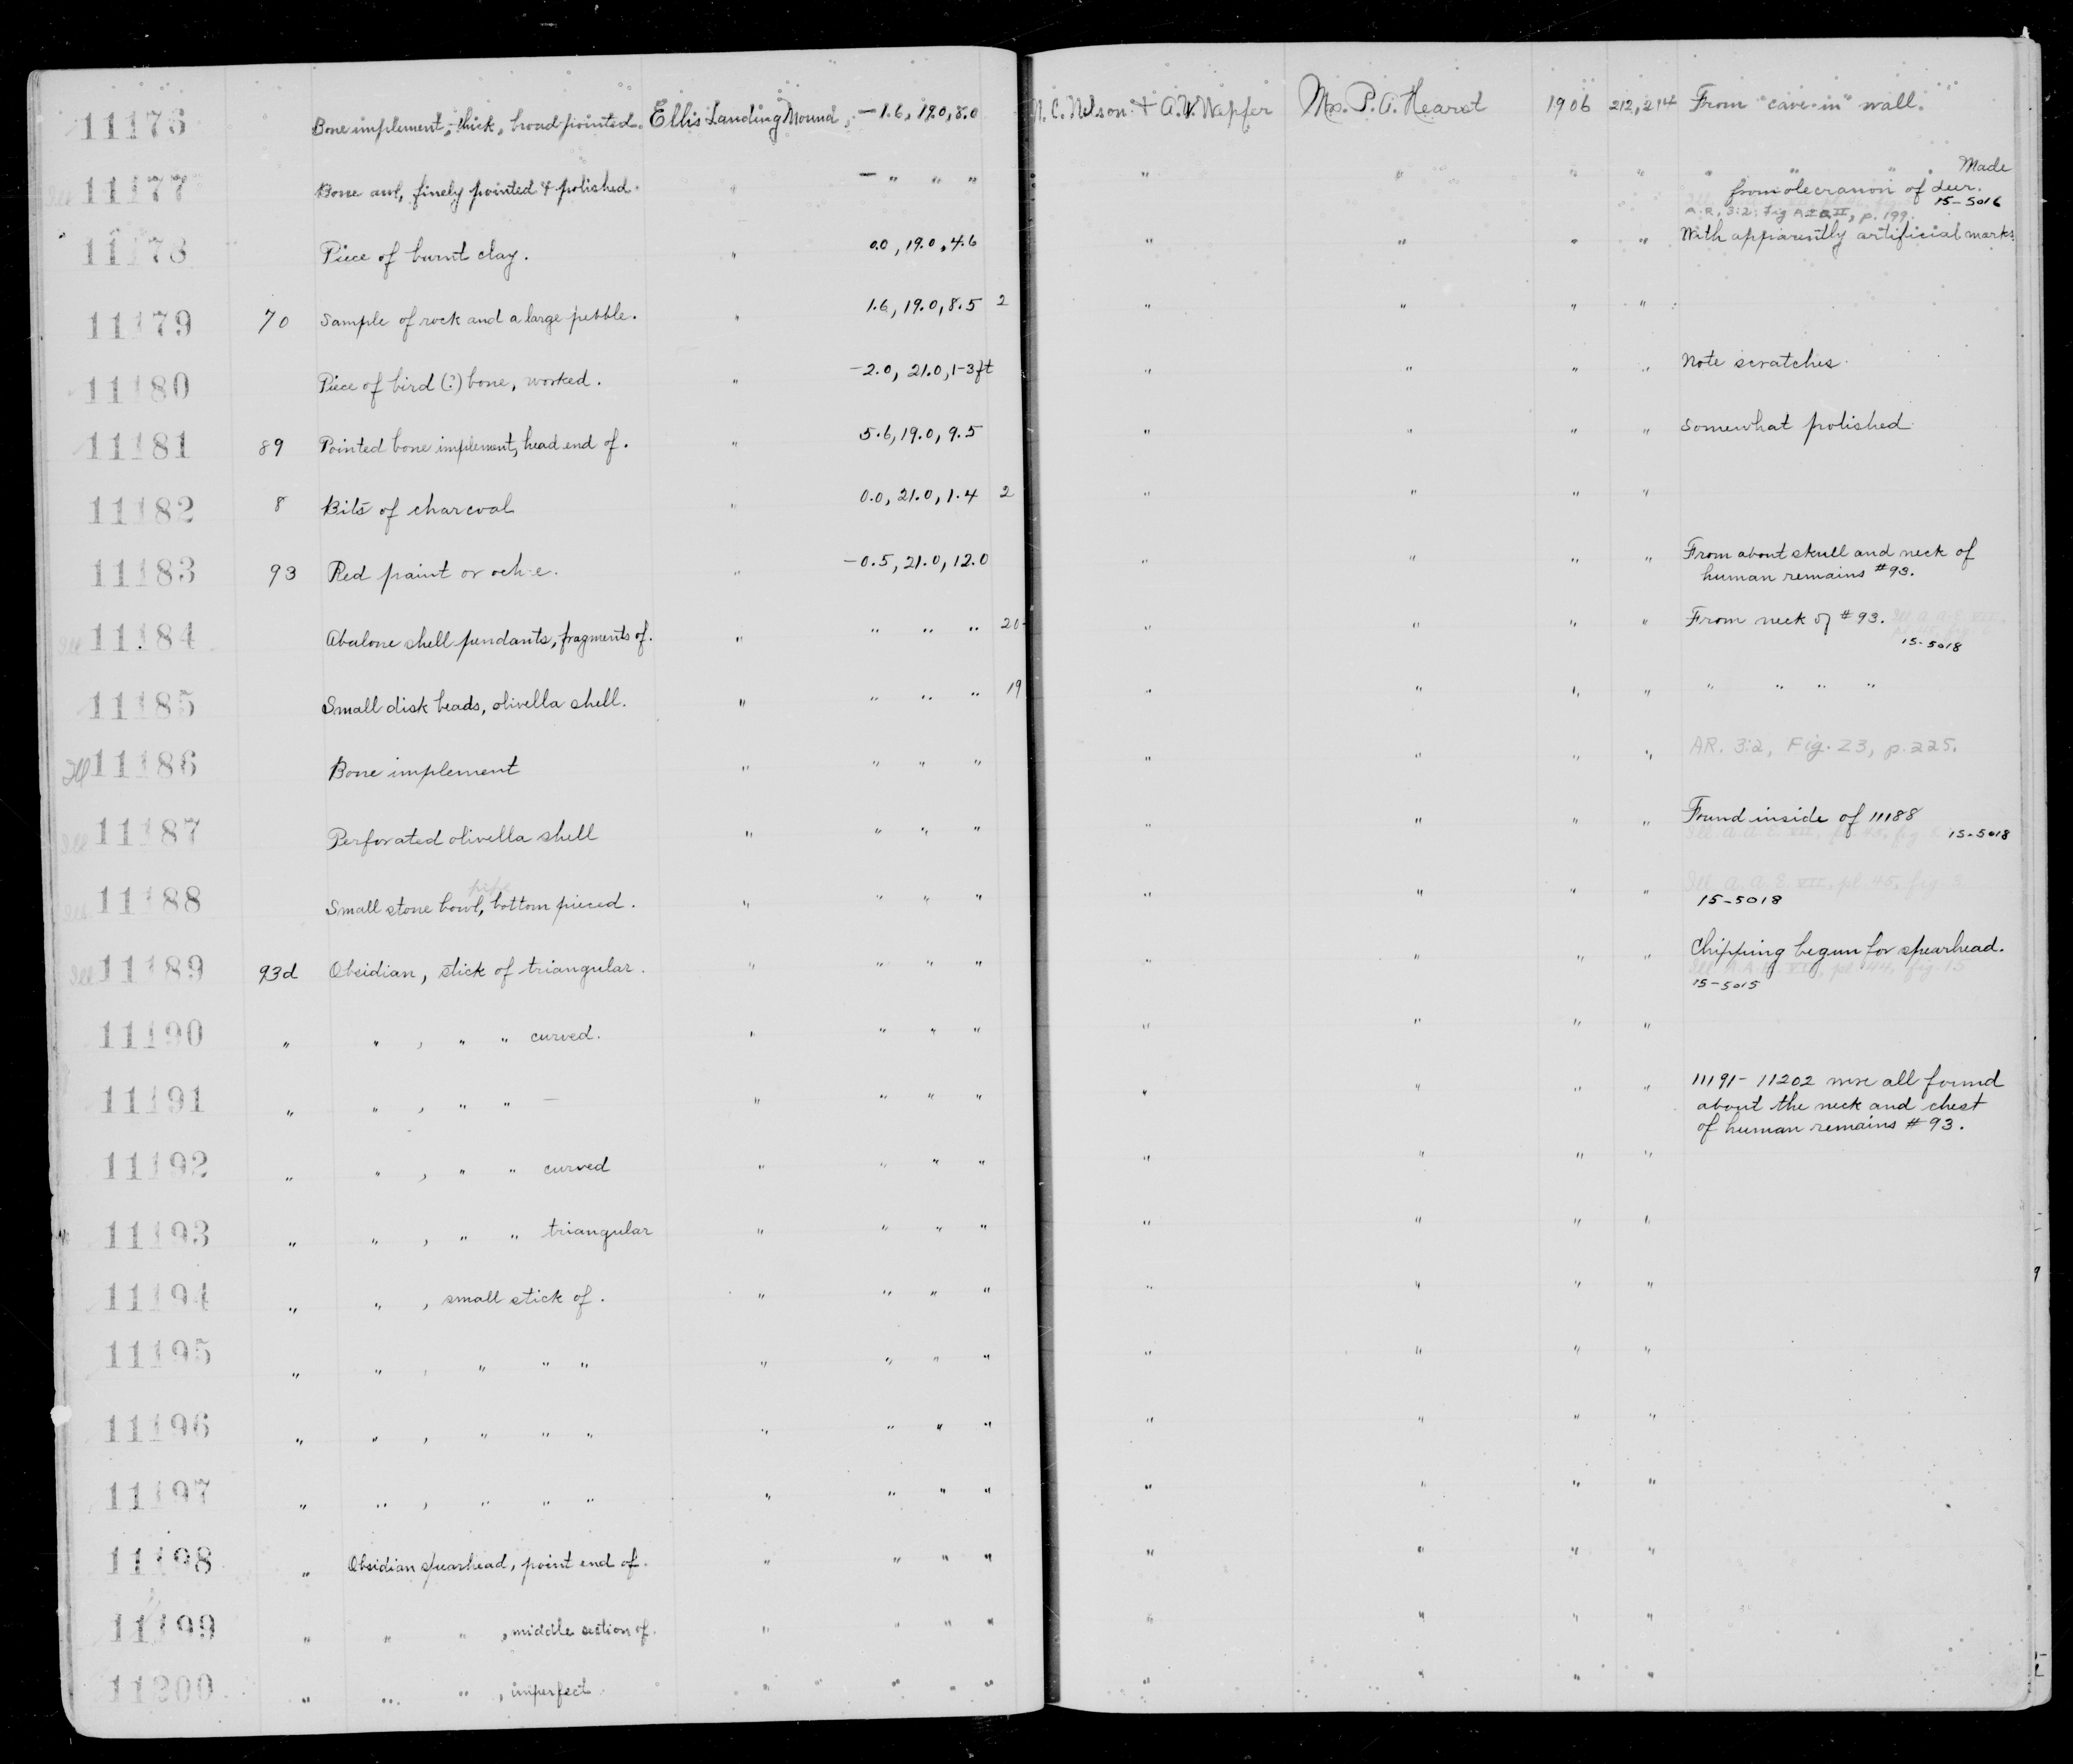 11176 Bone implement, thick, broad pointed. Ellis Landing Mound, -1.6, 19.0, 8.0 N. C. Nelson + A. W. Wepfer Mrs. P. A. Hearst 1906 212, 214 From "cave-in" wall.
Ill 11177 Bone awl, finely pointed & polished. " - " " " " " " " " " " Made
from olecranon of deer.
15-5016
A.R. 3:2: Fig
p. 199.
11178 Piece of burnt clay. " 0.0, 19.0, 4.6 " " " " With apparently artificial marks
11179 70 Sample of rock and a large pebble. " 1.6, 19.0, 8.5 2 " " " "
11180 Piece of bird (?) bone, worked. " -2.0, 21.0, 1-3ft " " " " Note scratches.
11181 89 Pointed bone implement, head end of. " 5.6, 19.0, 9.5 " " " " Somewhat polished.
11182 8 Bits of charcoal " 0.0, 21.0, 1.4 2 " " " "
11183 93 Red paint or och e. " -0.5, 21.0, 12.0 " " " " From about skull and neck of
human remains #93.
Ill 11184 Abalone shell pendants, fragments of. " " " " 20 " " " " From neck of #93. Ill A.A.E. VII
15-5018
11185 Small disk beads, olivella shell. " " " " 19 " " " " " " " "
Ill 11186 Bone implement " " " " " " " " AR. 3:2, Fig. 23, p. 225.
Ill 11187 Perforated olivella shell " " " " " " " " Found inside of 11188
Ill A.A.E. VII, pl. 45, fig 15-5018
pipe
Ill 11188 Small stone bowl, bottom pieced. " " " " " " " " Ill A.A.E. VII, pl. 45, fig
15-5018
Ill 11189 93d Obsidian, stick of triangular. " " " " " " " " Chipping begun for spearhead.
Ill A.A.E. VII, pl 44, fig. 15
15-5015
11190 " " , " " curved. " " " " " " " "
11191 " " , " " — " " " " " " " " 11191-11202 were all found
about the neck and chest
of human remains #93.
11192 " " , " " curved " " " " " " " "
11193 " " , " " triangular " " " " " " " "
11194 " " , small stick of. " " " " " " " "
11195 " " , " " " " " " " " " " "
11196 " " , " " " " " " " " " " "
11197 " " , " " " " " " " " " " "
11198 " Obsidian spearhead, point end of. " " " " " " " "
11199 " " " , middle section of. " " " " " " " "
11200 " " " , imperfect " " " " " " " "